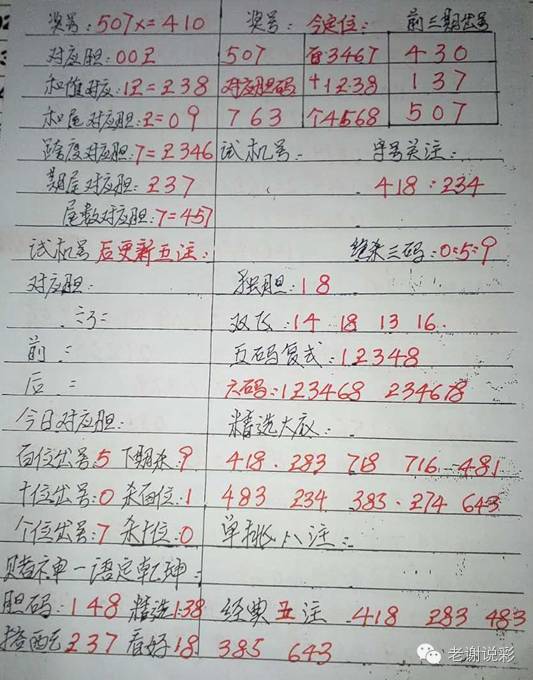 奖号:507X=410 奖号: 今定位: 前三期出号
对应胆:00Z 507 百3467 430
和值对应:12=238 对应胆码 十1238 137
和尾对应胆:2=09 763 个4568 507
跨度对应胆:7=2346 试机号: 字号关注:
期尾对应胆:237 418:234
尾数对应胆:7=457
试机号后更新五注: 绝杀三码:0:5:9
对应胆: 独胆:18
双飞:14 18 13 16.
前 = 五码复式:12348
后 = 六码:123468 234678
今日对应胆: 精选大底:
百位出号:5 下期杀:9 418. 283 718 716 481
十位出号:0 杀百位:1 483 234 383. 274 643
个位出号:7 杀十位:0 单挑八注:
赌神一语定乾坤:
胆码:148 精选138 经典五注 .418 283 483
搭配237 看好18 385 643
老谢说彩